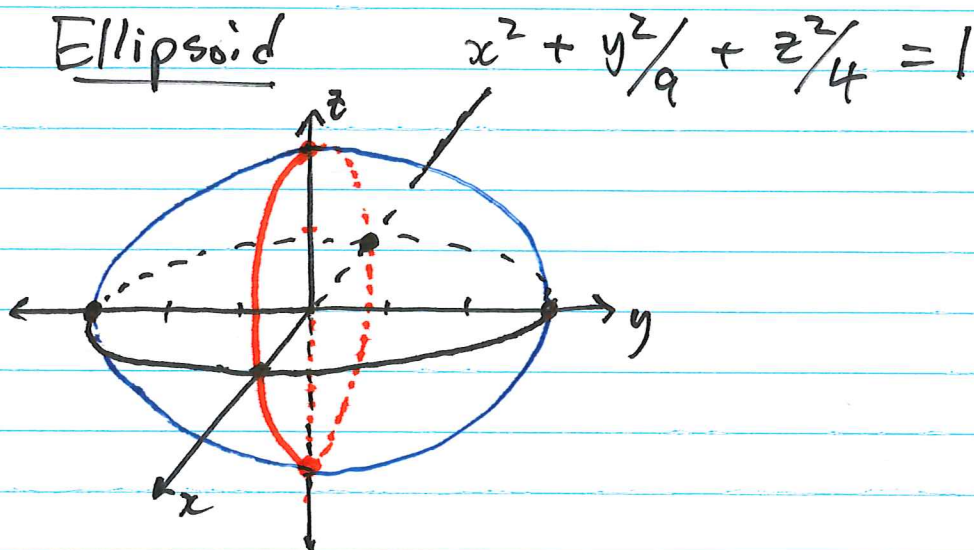 Ellipsoid x² + y²/9 + z²/4 = 1
z
y
x